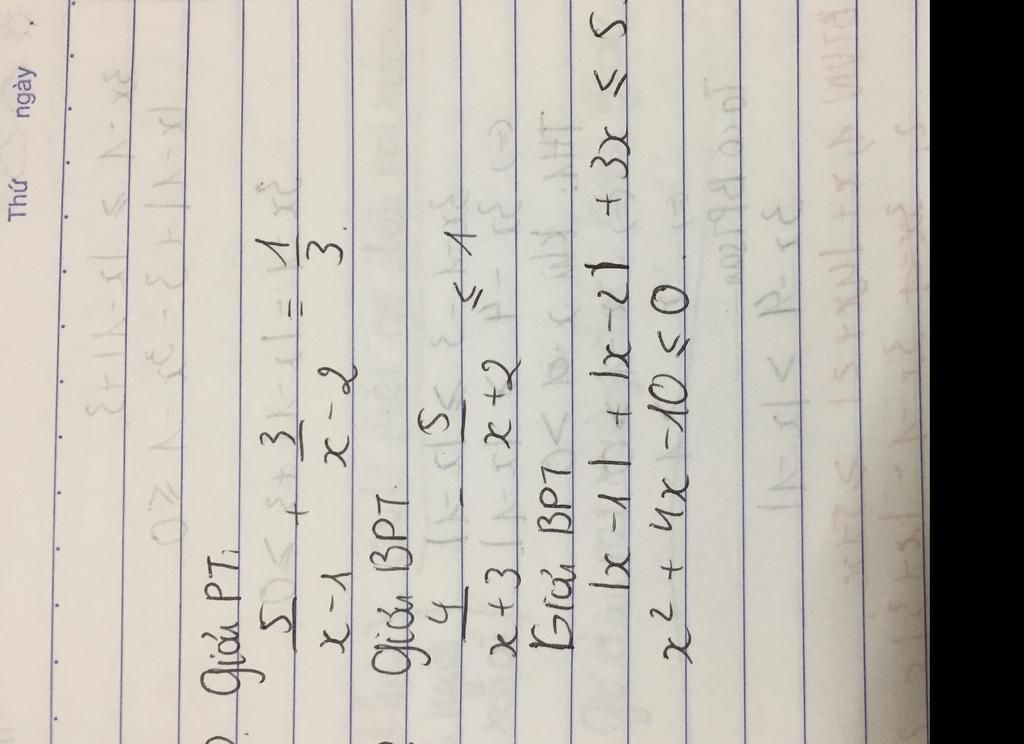 Thứ ngày
Giải PT:
5/(x-1) + 3/(x-2) = 1/3.
Giải BPT.
4/(x+3) - 5/(x+2) ≤ 1
Giải BPT
|x-1| + |x-2| + 3x ≤ 5.
x² + 4x - 10 ≤ 0